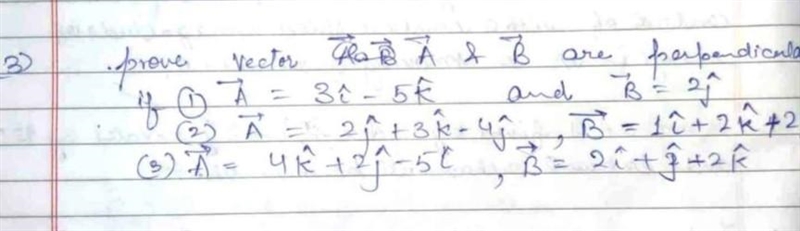 3) prove vector A⃗ & B⃗ are perpendicula
if (1) A⃗ = 3î - 5k̂ and B⃗ = 2ĵ
(2) A⃗ = 2ĵ + 3k̂ - 4ĵ , B⃗ = 1î + 2k̂ + 2
(3) A⃗ = 4k̂ + 2ĵ - 5î , B⃗ = 2î + ĵ + 2k̂